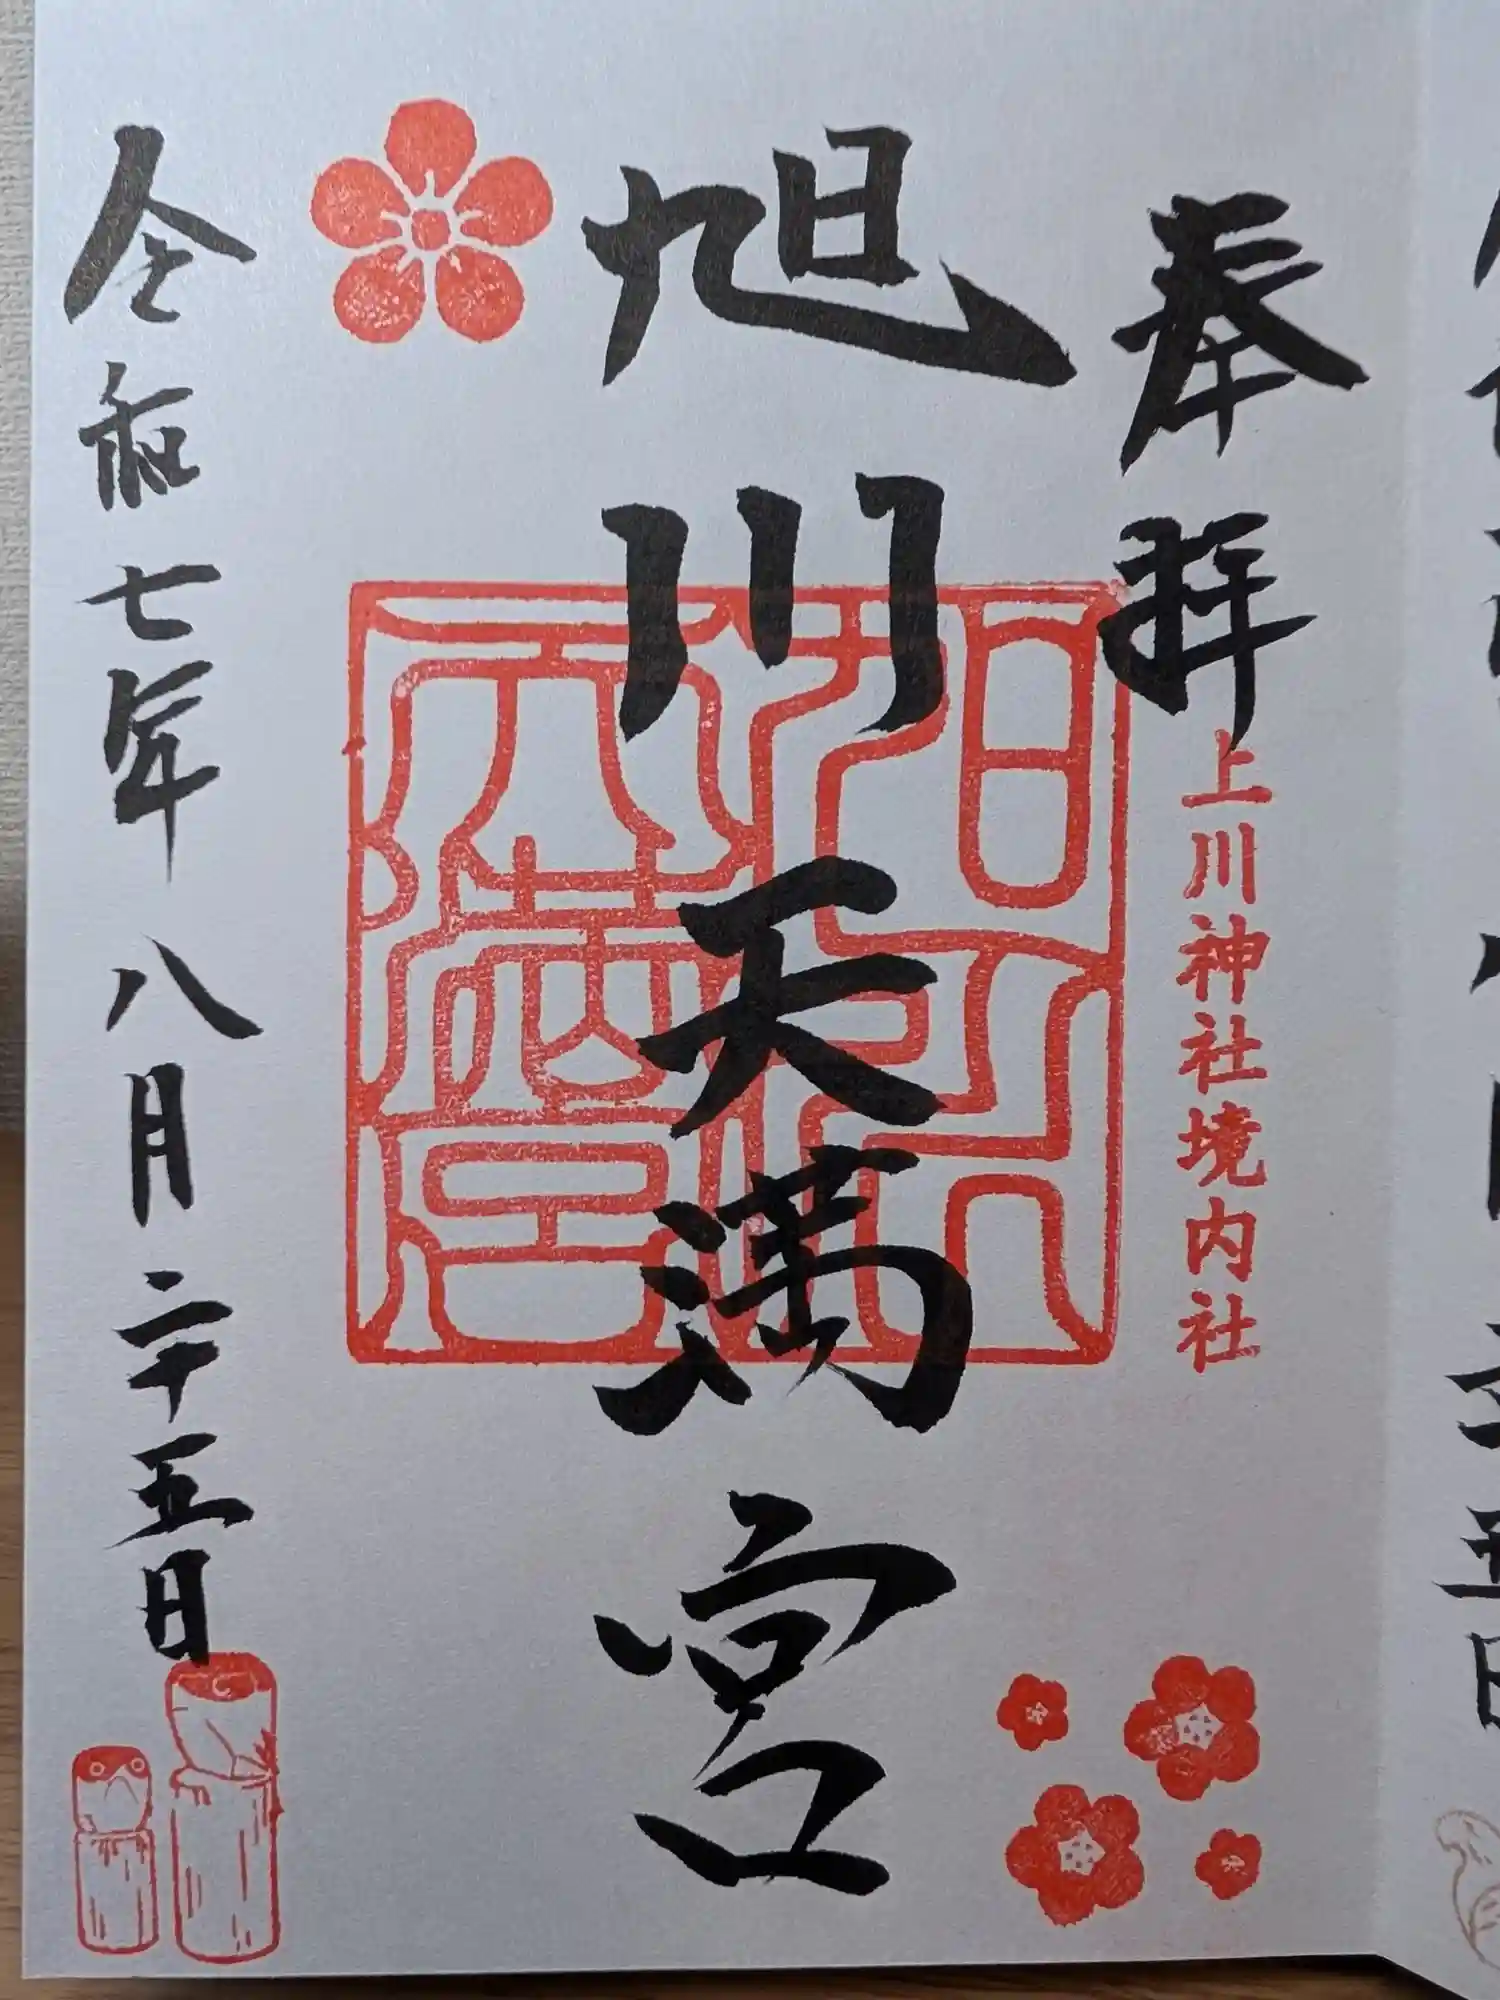 奉拝
上川神社境内社
旭川天満宮
旭川天満宮
令和七年八月二十五日